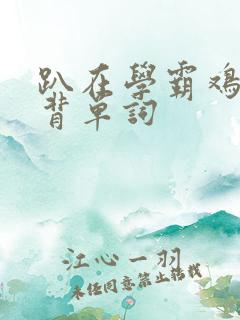 趴在學霸鸡
背单詞
江心一羽
未经同意禁止转载